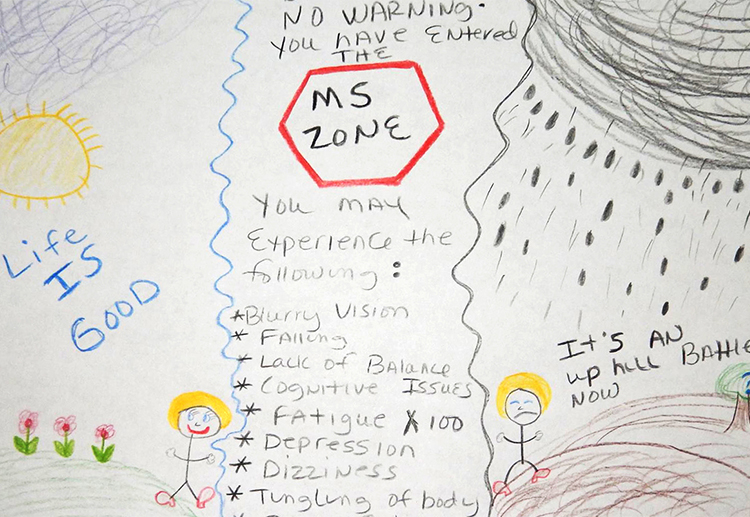 NO WARNING.
You have Entered
THE
MS
ZONE
You may
Experience the
following:
Life
IS
GOOD
*Blurry Vision
* Falling
* Lack of Balance
* Cognitive Issues
* Fatigue X 100
* Depression
* Dizziness
* Tingling of body
It's an
up hill Battle
now